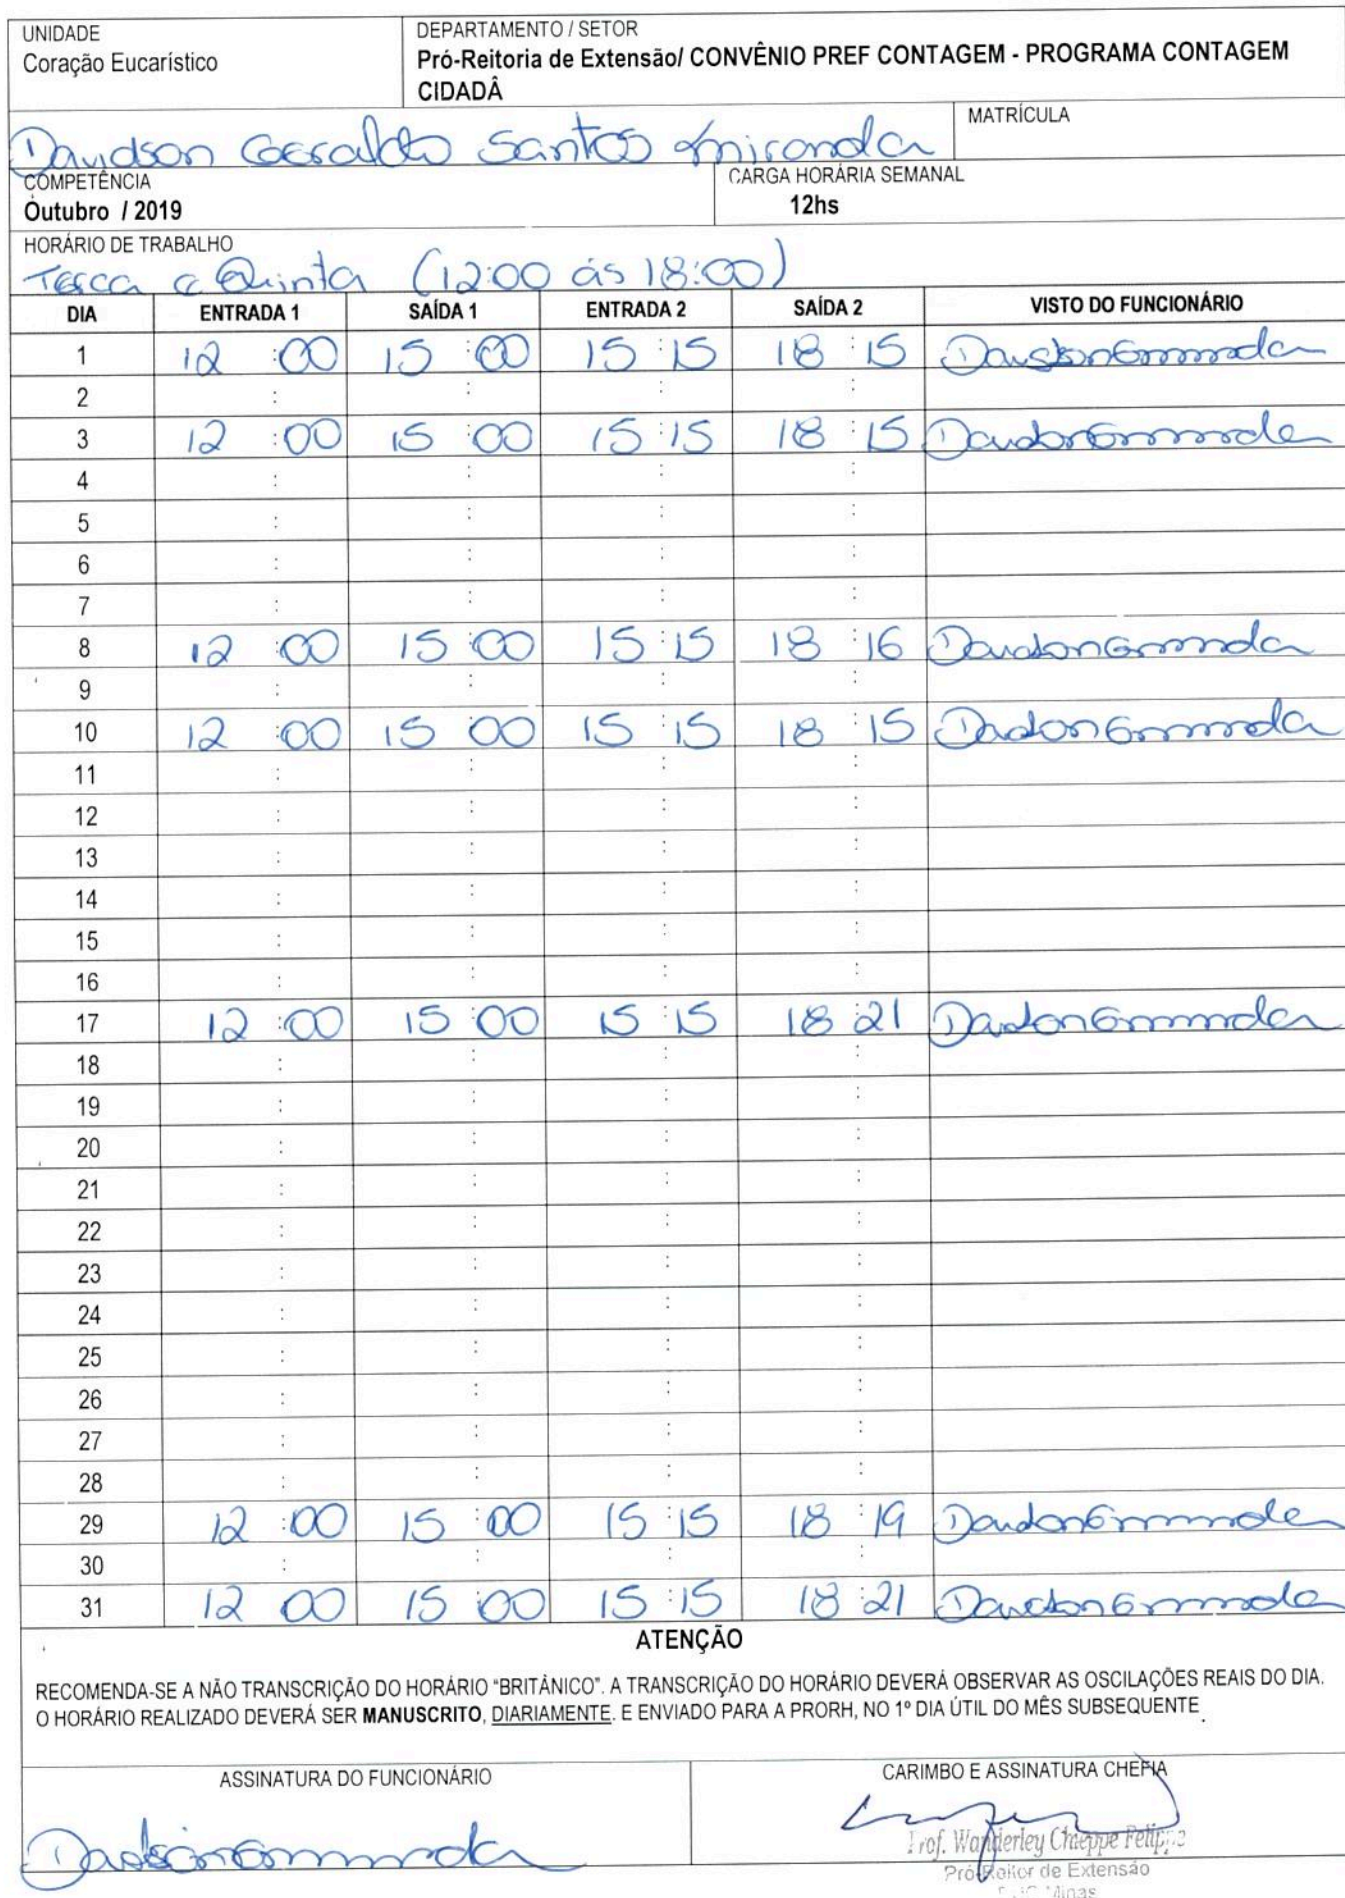 UNIDADE
Coração Eucarístico
DEPARTAMENTO / SETOR
Pró-Reitoria de Extensão/ CONVÊNIO PREF CONTAGEM - PROGRAMA CONTAGEM
CIDADÂ
Davidson Geraldo Santos Miranda
MATRÍCULA
COMPETÊNCIA
Outubro / 2019
CARGA HORÁRIA SEMANAL
12hs
HORÁRIO DE TRABALHO
Terça e Quinta (12:00 ás 18:00)
DIA ENTRADA 1 SAÍDA 1 ENTRADA 2 SAÍDA 2 VISTO DO FUNCIONÁRIO
1 12 :00 15 :00 15 :15 18 :15
2 : : : :
3 12 :00 15 :00 15 :15 18 :15
4 : : : :
5 : : : :
6 : : : :
7 : : : :
8 12 :00 15 :00 15 :15 18 :16
9 : : : :
10 12 :00 15 :00 15 :15 18 :15
11 : : : :
12 : : : :
13 : : : :
14 : : : :
15 : : : :
16 : : : :
17 12 :00 15 :00 15 :15 18 :21
18 : : : :
19 : : : :
20 : : : :
21 : : : :
22 : : : :
23 : : : :
24 : : : :
25 : : : :
26 : : : :
27 : : : :
28 : : : :
29 12 :00 15 :00 15 :15 18 :19
30 : : : :
31 12 :00 15 :00 15 :15 18 :21
ATENÇÃO
RECOMENDA-SE A NÃO TRANSCRIÇÃO DO HORÁRIO "BRITÂNICO". A TRANSCRIÇÃO DO HORÁRIO DEVERÁ OBSERVAR AS OSCILAÇÕES REAIS DO DIA.
O HORÁRIO REALIZADO DEVERÁ SER MANUSCRITO, DIARIAMENTE. E ENVIADO PARA A PRORH, NO 1º DIA ÚTIL DO MÊS SUBSEQUENTE.
ASSINATURA DO FUNCIONÁRIO
CARIMBO E ASSINATURA CHEFIA
Prof. Wanderley Chieppe Felippe
Pró-Reitor de Extensão
PUC Minas